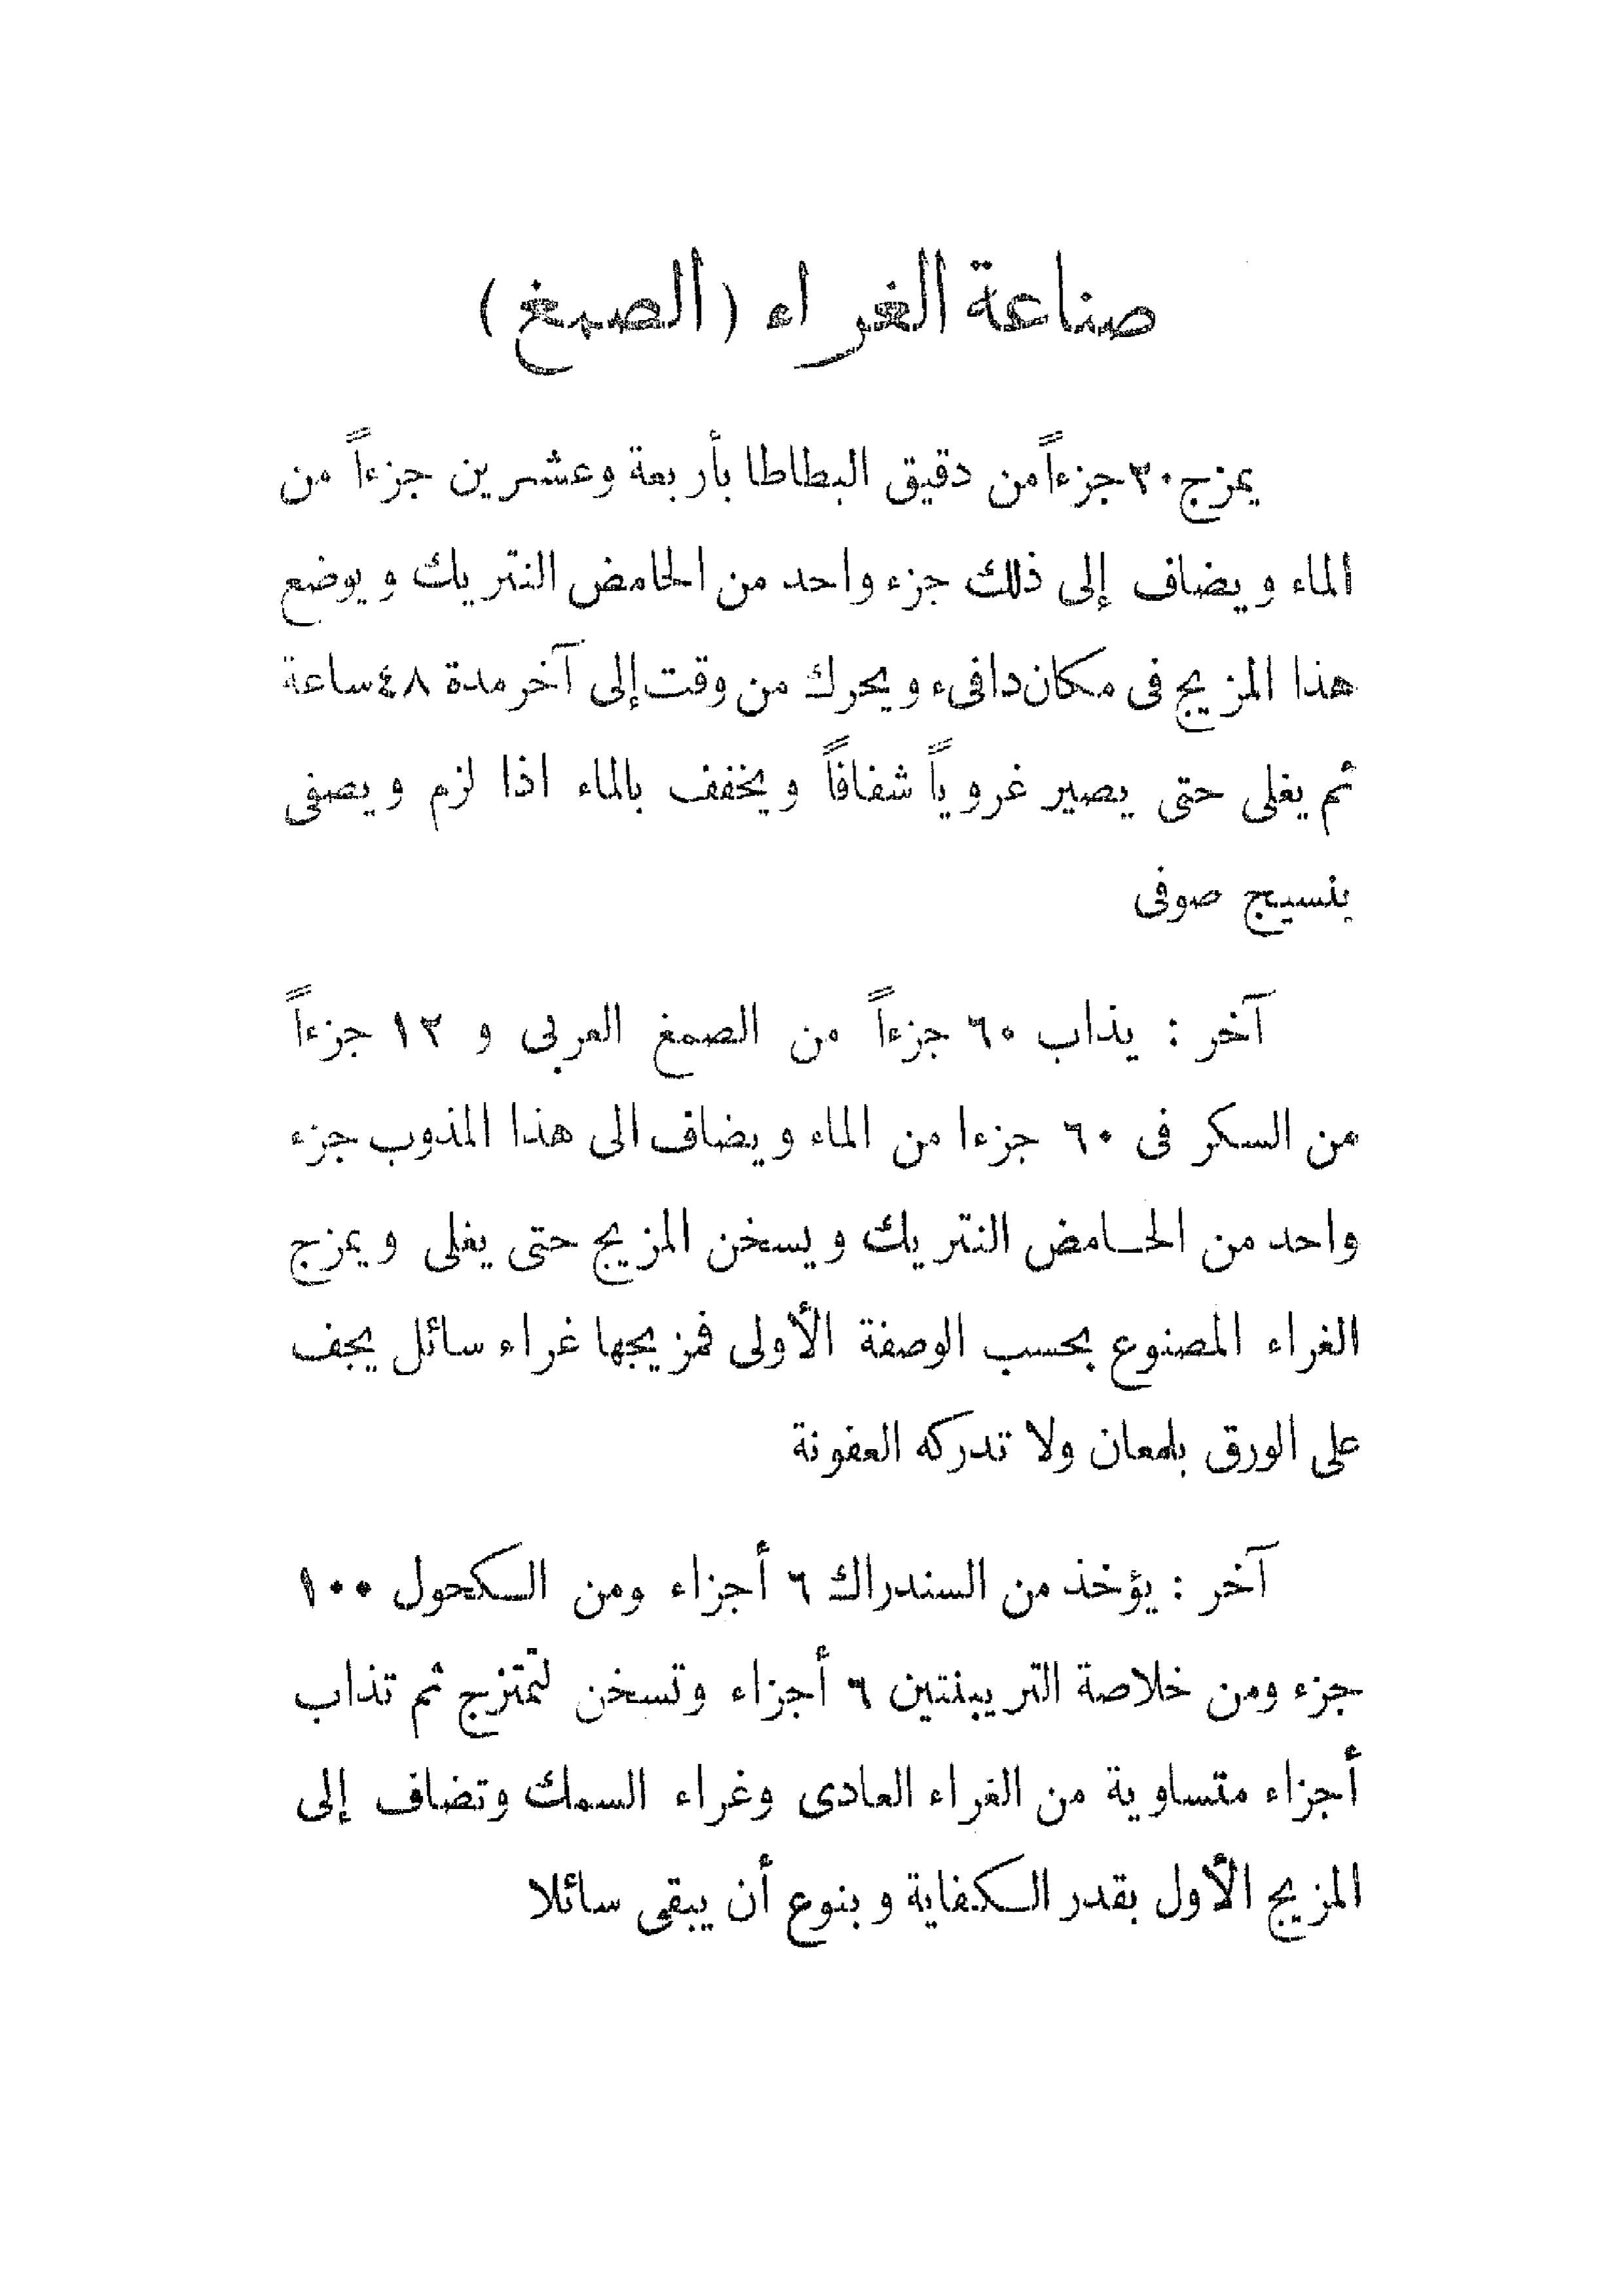 صناعة الغراء (الصمغ)
يمزج ٢٠ جزءاً من دقيق البطاطا بأربعة وعشرين جزءاً من
الماء ويضاف إلى ذلك جزء واحد من الحامض النتريك ويوضع
هذا المزيج فى مكان دافىء ويحرك من وقت إلى آخر مدة ٤٨ ساعة
ثم يغلى حتى يصير غروياً شفافاً ويخفف بالماء اذا لزم ويصفى
بنسيج صوفى
آخر : يذاب ٦٠ جزءاً من الصمغ العربى و ١٢ جزءاً
من السكر فى ٦٠ جزءا من الماء ويضاف الى هذا المذوب جزء
واحد من الحـامض النتريك ويسخن المزيج حتى يغلى ويمزج
الغراء المصنوع بحسب الوصفة الأولى فمزيجها غراء سائل يجف
على الورق بلمعان ولا تدركه العفونة
آخر : يؤخذ من السندراك ٦ أجزاء ومن الكحول ١٠٠
جزء ومن خلاصة التريبنتين ٦ أجزاء وتسخن لتمتزج ثم تذاب
أجزاء متساوية من الغراء العادى وغراء السمك وتضاف إلى
المزيج الأول بقدر الكفاية وبنوع أن يبقى سائلا